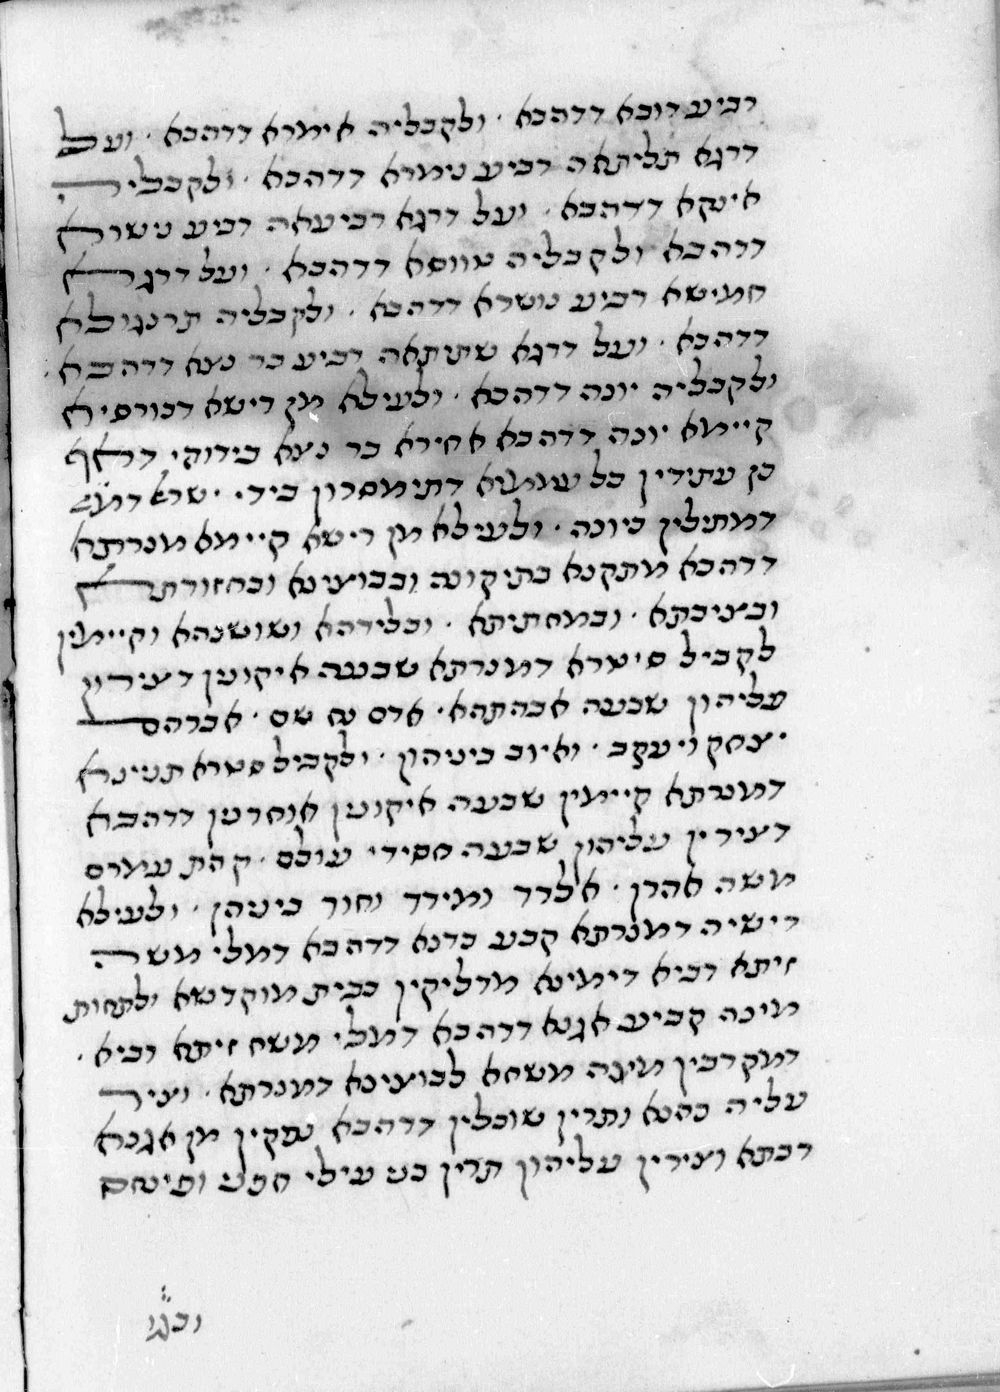 רביע דובא דדהבא · ולקבליה אימרא דדהבא · ועל
דרגא תליתאה רביע נימרא דדהבא · ולקבליה
אינקא דדהבא · ועל דרגא רביעאה רביע נישרא
דדהבא ולקבליה טווסא דדהבא · ועל דרגא
חמישא רביע נושרא דדהבא · ולקבליה תרנגולא
דדהבא · ועל דרגא שתיתאה רביע בר נצא דדהבא ·
ולקבליה יונה דדהבא · ולעילא מן רישא דכורסיא
קיימא יונה דדהבא אחירא בר נצא בידה · דאף
כן עתידין כל עממיא דתימסרון ביד ישראל דמת
דמתילין ביונה · ולעילא מן רישא קיימא מנרתא
דדהבא מתקנא בתיקונה ובבוצינא ובחזורתא
ובציבתא · ובמחתיתא · ובלידהא ושושנהא וקיימין
לקביל סיטרא דמנרתא שבעה איקונין דצירין
עליהון שבעה אבהתהא · אדם נח שם · אברהם
יצחק ויעקב · ואיוב ביניהון · ולקביל סטרא תנינא
דמנרתא קיימין שבעה איקונין אוחרנין דדהבא
דצירין עליהון שבעה חסידי עולם · קהת עמרם
משה אהרן · אלדד ומידד וחור ביניהן · ולעילא
רישיה דמנרתא קבע כדנא דדהבא דמלי משח
זיתא דכיא דימינא מדליקין בבית מוקדשא ולתחות
מינה קביע אגנא דדהבא דמלי משח זיתא דכיא ·
דמקרבין מינה משחא לבוצינא דמנרתא · וציר
עליה כהנא ותרין שובלין דדהבא נפקין מן אגנא
רבתא וצירין עליהון תרין בני עילי חפני ופינחס
ובגו